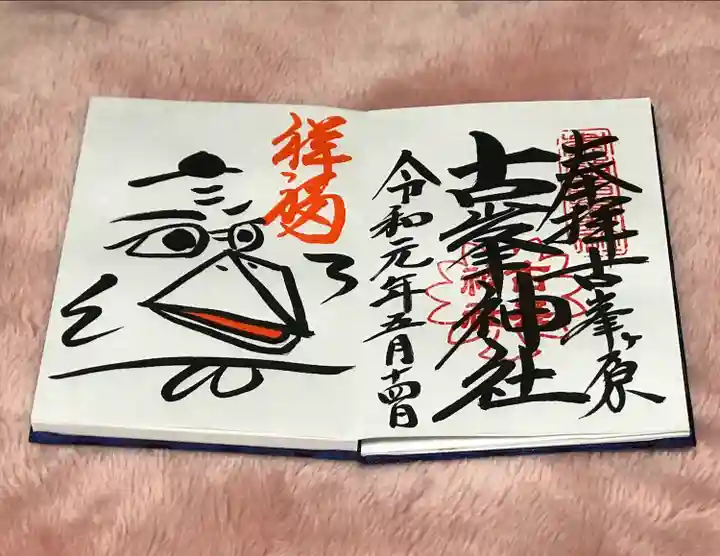 奉拝 古峯ヶ原
古峯神社
令和元年五月十四日
祥福